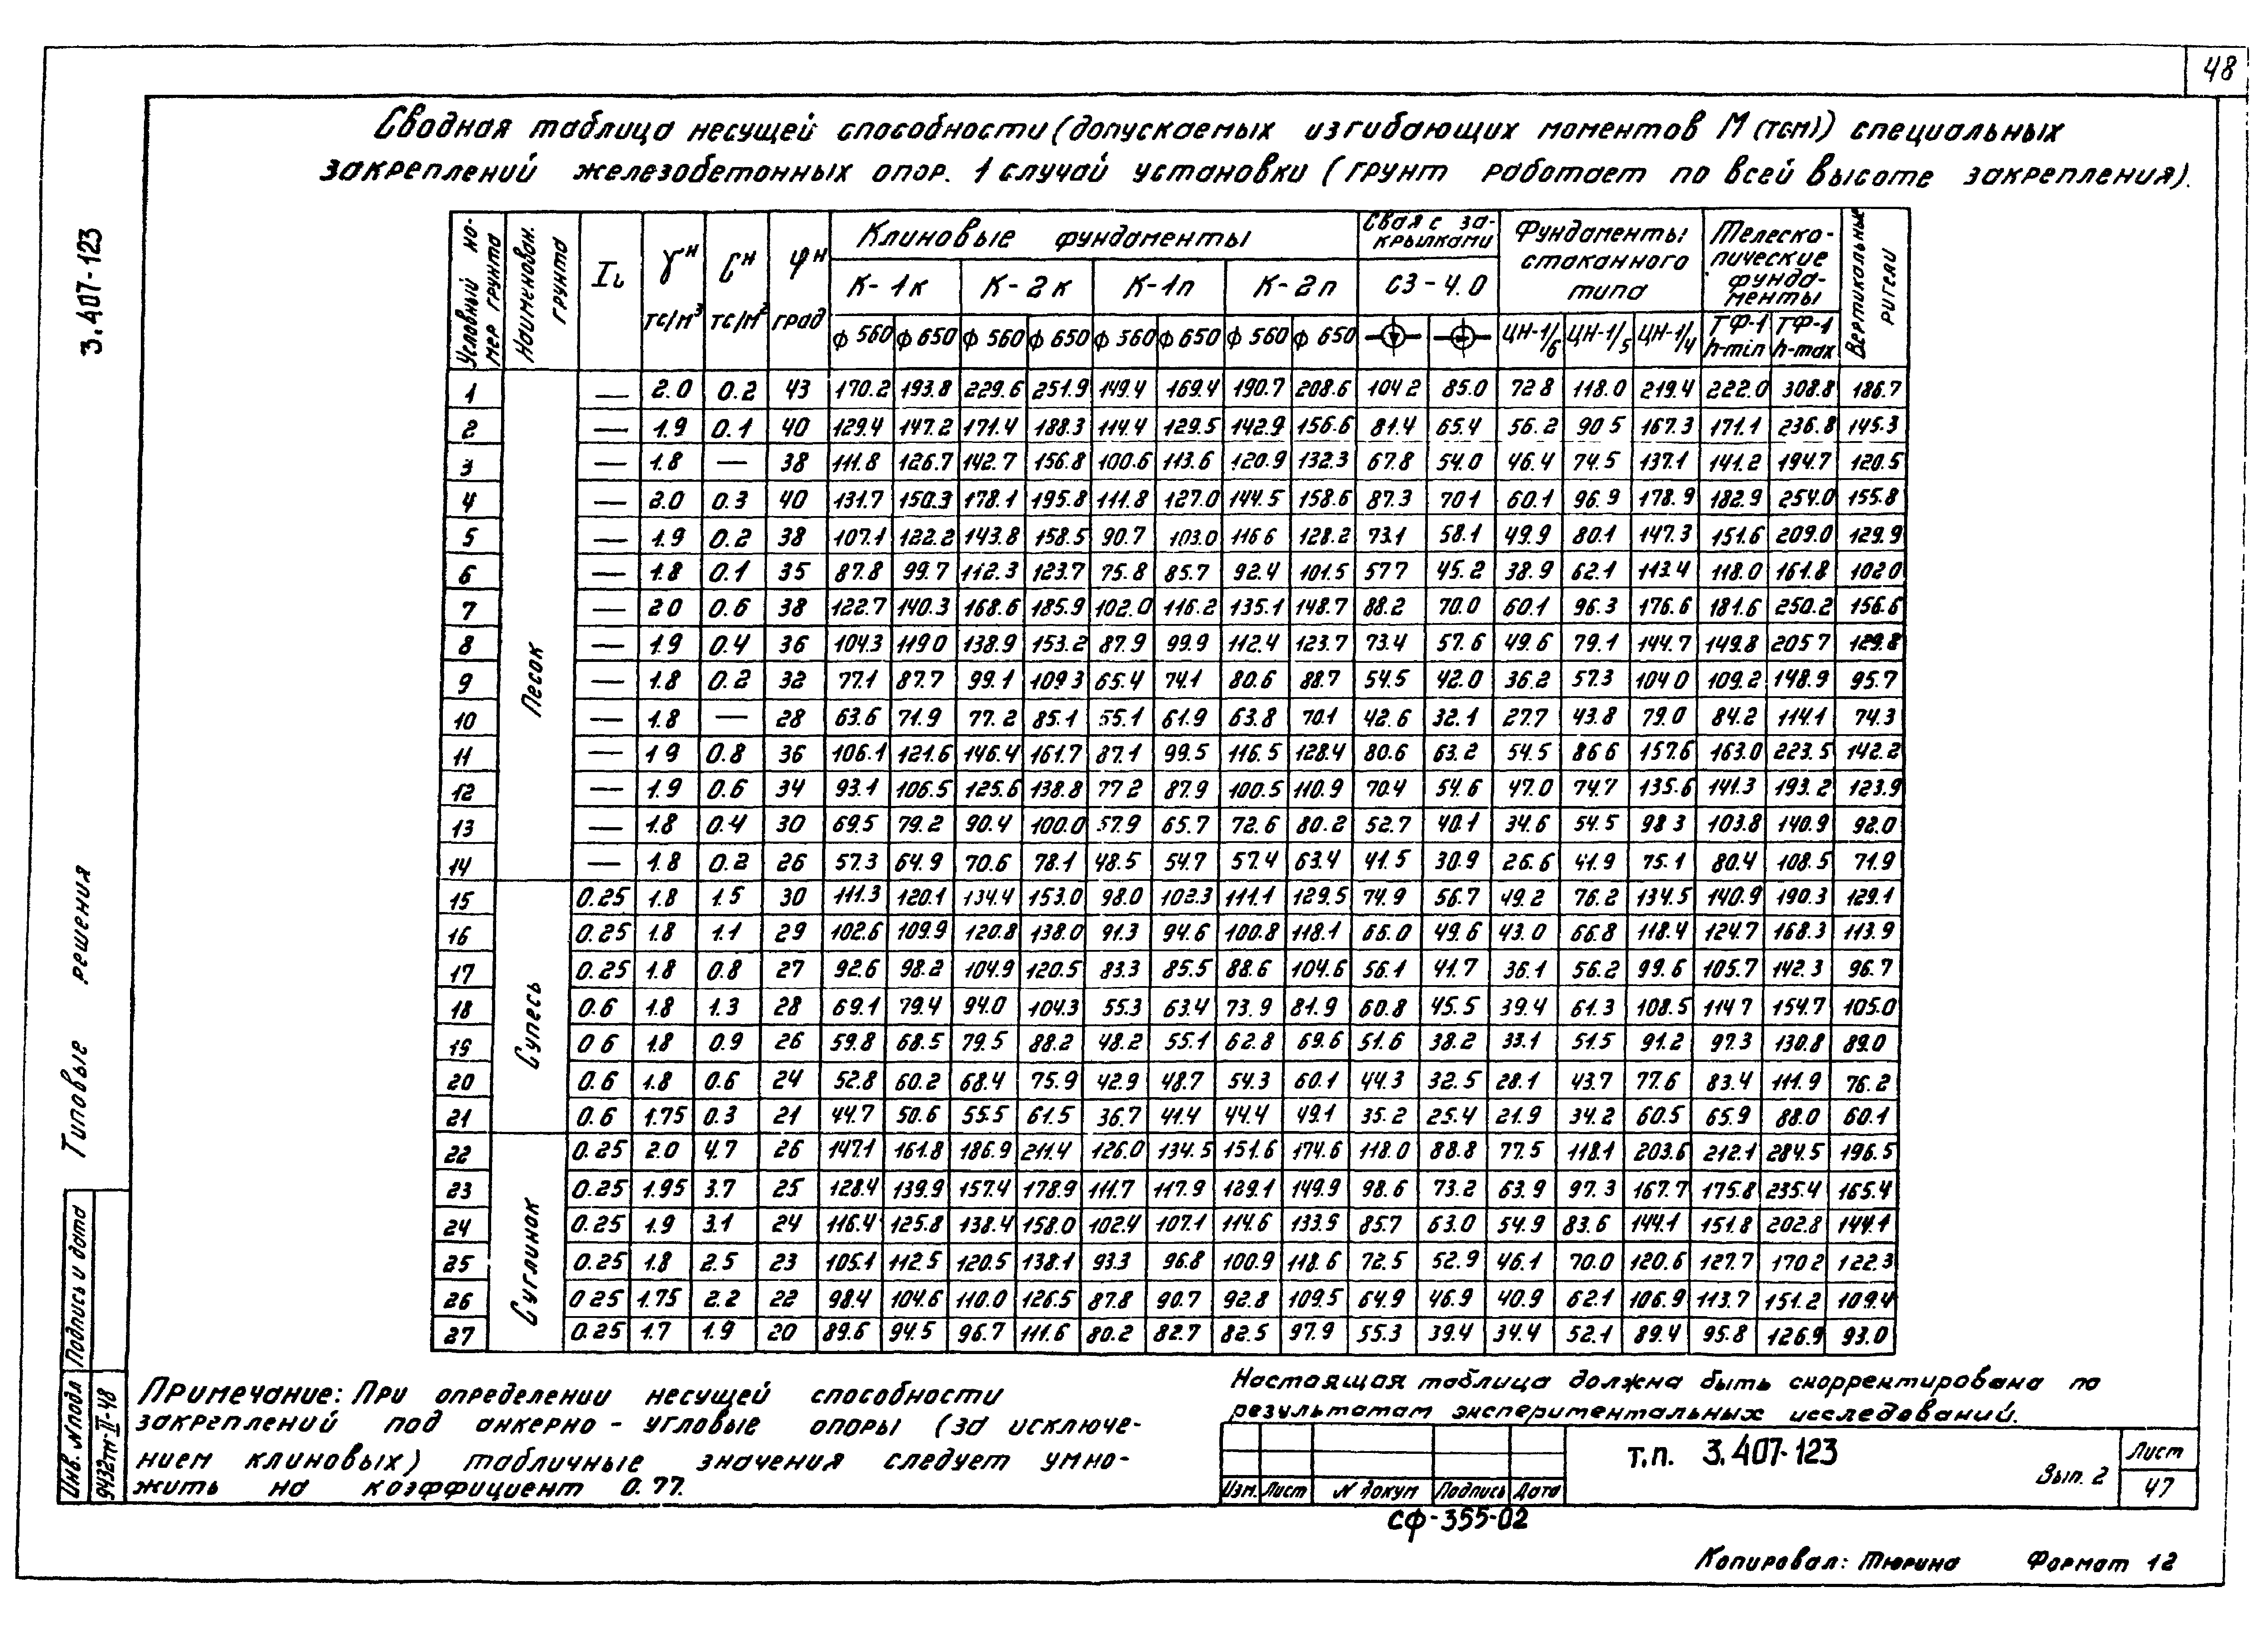 48
Сводная таблица несущей способности (допускаемых изгибающих моментов М (тсм)) специальных
закреплений железобетонных опор. 1 случай установки (грунт работает по всей высоте закрепления).
3.407-123
Типовые решения
Условный номер грунта
Наименован. грунта
IL
γн тс/м³
Cн тс/м²
φн град
Клиновые фундаменты
Свая с закрылками
Фундаменты стаканного типа
Телескопические фундаменты
Вертикальные ригели
К-1к К-2к К-1п К-2п С3-4.0
ф 560 ф 650 ф 560 ф 650 ф 560 ф 650 ф 560 ф 650 ЦН-1/6 ЦН-1/5 ЦН-1/4 ТФ-1 h-min ТФ-1 h-max
Песок
1 — 2.0 0.2 43 170.2 193.8 229.6 251.9 149.4 169.4 190.7 208.6 104 2 85.0 72 8 118.0 219.4 222.0 308.8 186.7
2 — 1.9 0.1 40 129.4 147.2 171.4 188.3 114.4 129.5 142.9 156.6 81.4 65.4 56.2 90 5 167.3 171.1 236.8 145.3
3 — 1.8 — 38 111.8 126.7 142.7 156.8 100.6 113.6 120.9 132.3 67.8 54.0 46.4 74.5 137.1 141.2 194.7 120.5
4 — 2.0 0.3 40 131.7 150.3 178.1 195.8 111.8 127.0 144.5 158.6 87.3 70 1 60.1 96.9 178.9 182.9 254.0 155.8
5 — 1.9 0.2 38 107.1 122.2 143.8 158.5 90.7 103.0 116 6 128.2 73.1 58.1 49.9 80.1 147.3 151.6 209.0 129.9
6 — 1.8 0.1 35 87.8 99.7 112.3 123.7 75.8 85.7 92.4 101.5 57 7 45.2 38.9 62.1 113.4 118.0 161.8 102 0
7 — 2 0 0.6 38 122.7 140.3 168.6 185.9 102.0 116.2 135.1 148.7 88.2 70.0 60.1 96.3 176.6 181.6 250.2 156.6
8 — 1.9 0.4 36 104.3 119 0 138.9 153.2 87.9 99.9 112.4 123.7 73.4 57.6 49.6 79.1 144.7 149.8 205 7 129.8
9 — 1.8 0.2 32 77.1 87.7 99.1 109 3 65.4 74.1 80.6 88.7 54.5 42.0 36.2 57.3 104 0 109.2 148.9 95.7
10 — 1.8 — 28 63.6 71.9 77.2 85.1 55.1 61.9 63.8 70.1 42.6 32.1 27.7 43.8 79.0 84.2 114.1 74.3
11 — 1 9 0.8 36 106.1 121.6 146.4 161.7 87.1 99.5 116.5 128.4 80.6 63.2 54.5 86 6 157.6 163.0 223.5 142.2
12 — 1.9 0.6 34 93.1 106.5 125.6 138.8 77 2 87.9 100.5 110.9 70.4 54.6 47.0 74.7 135.6 141.3 193.2 123.9
13 — 1.8 0.4 30 69.5 79.2 90.4 100.0 57.9 65.7 72.6 80.2 52.7 40.1 34.6 54.5 98 3 103.8 140.9 92.0
14 — 1.8 0.2 26 57.3 64.9 70.6 78.1 48.5 54.7 57.4 63.4 41.5 30.9 26.6 41.9 75.1 80.4 108.5 71.9
Супесь
15 0.25 1.8 1.5 30 111.3 120.1 134.4 153.0 98.0 102.3 111.1 129.5 74.9 56.7 49.2 76.2 134.5 140.9 190.3 129.1
16 0.25 1.8 1.1 29 102.6 109.9 120.8 138.0 91.3 94.6 100.8 118.1 66.0 49.6 43.0 66.8 118.4 124.7 168.3 113.9
17 0.25 1.8 0.8 27 92.6 98.2 104.9 120.5 83.3 85.5 88.6 104.6 56.1 41.7 36.1 56.2 99.6 105.7 142.3 96.7
18 0.6 1.8 1.3 28 69.1 79.4 94.0 104.3 55.3 63.4 73.9 81.9 60.8 45.5 39.4 61.3 108.5 114 7 154.7 105.0
19 0 6 1.8 0.9 26 59.8 68.5 79.5 88.2 48.2 55.1 62.8 69.6 51.6 38.2 33.1 51.5 91.2 97.3 130.8 89.0
20 0.6 1.8 0.6 24 52.8 60.2 68.4 75.9 42.9 48.7 54.3 60.1 44.3 32.5 28.1 43.7 77.6 83.4 111.9 76.2
21 0.6 1.75 0.3 21 44.7 50.6 55.5 61.5 36.7 41.4 44.4 49.1 35.2 25.4 21.9 34.2 60.5 65.9 88.0 60.1
Суглинок
22 0.25 2.0 4.7 26 147.1 161.8 186.9 211.4 126.0 134.5 151.6 174.6 118.0 88.8 77.5 118.1 203.6 212.1 284.5 196.5
23 0.25 1.95 3.7 25 128.4 139.9 157.4 178.9 111.7 117.9 129.1 149.9 98.6 73.2 63.9 97.3 167.7 175.8 235.4 165.4
24 0.25 1.9 3.1 24 116.4 125.8 138.4 158.0 102.4 107.1 114.6 133.5 85.7 63.0 54.9 83.6 144.1 151.8 202.8 144.1
25 0.25 1.8 2.5 23 105.1 112.5 120.5 138.1 93.3 96.8 100.9 118.6 72.5 52.9 46.1 70.0 120.6 127.7 170 2 122.3
26 0 25 1.75 2.2 22 98.4 104.6 110.0 126.5 87.8 90.7 92.8 109.5 64.9 46.9 40.9 62.1 106.9 113.7 151.2 109.4
27 0.25 1.7 1.9 20 89.6 94.5 96.7 111.6 80.2 82.7 82.5 97.9 55.3 39.4 34.4 52.1 89.4 95.8 126.9 93.0
Примечание: При определении несущей способности
закреплений под анкерно-угловые опоры (за исключе-
нием клиновых) табличные значения следует умно-
жить на коэффициент 0.77.
Настоящая таблица должна быть скорректирована по
результатам экспериментальных исследований.
Изм. Лист N докум Подпись Дата
т.п. 3.407-123
Вып. 2
Лист
47
СФ-355-02
Копировал: Тюрина Формат 12
Инв. N подл Подпись и дата
9432тм-II-48